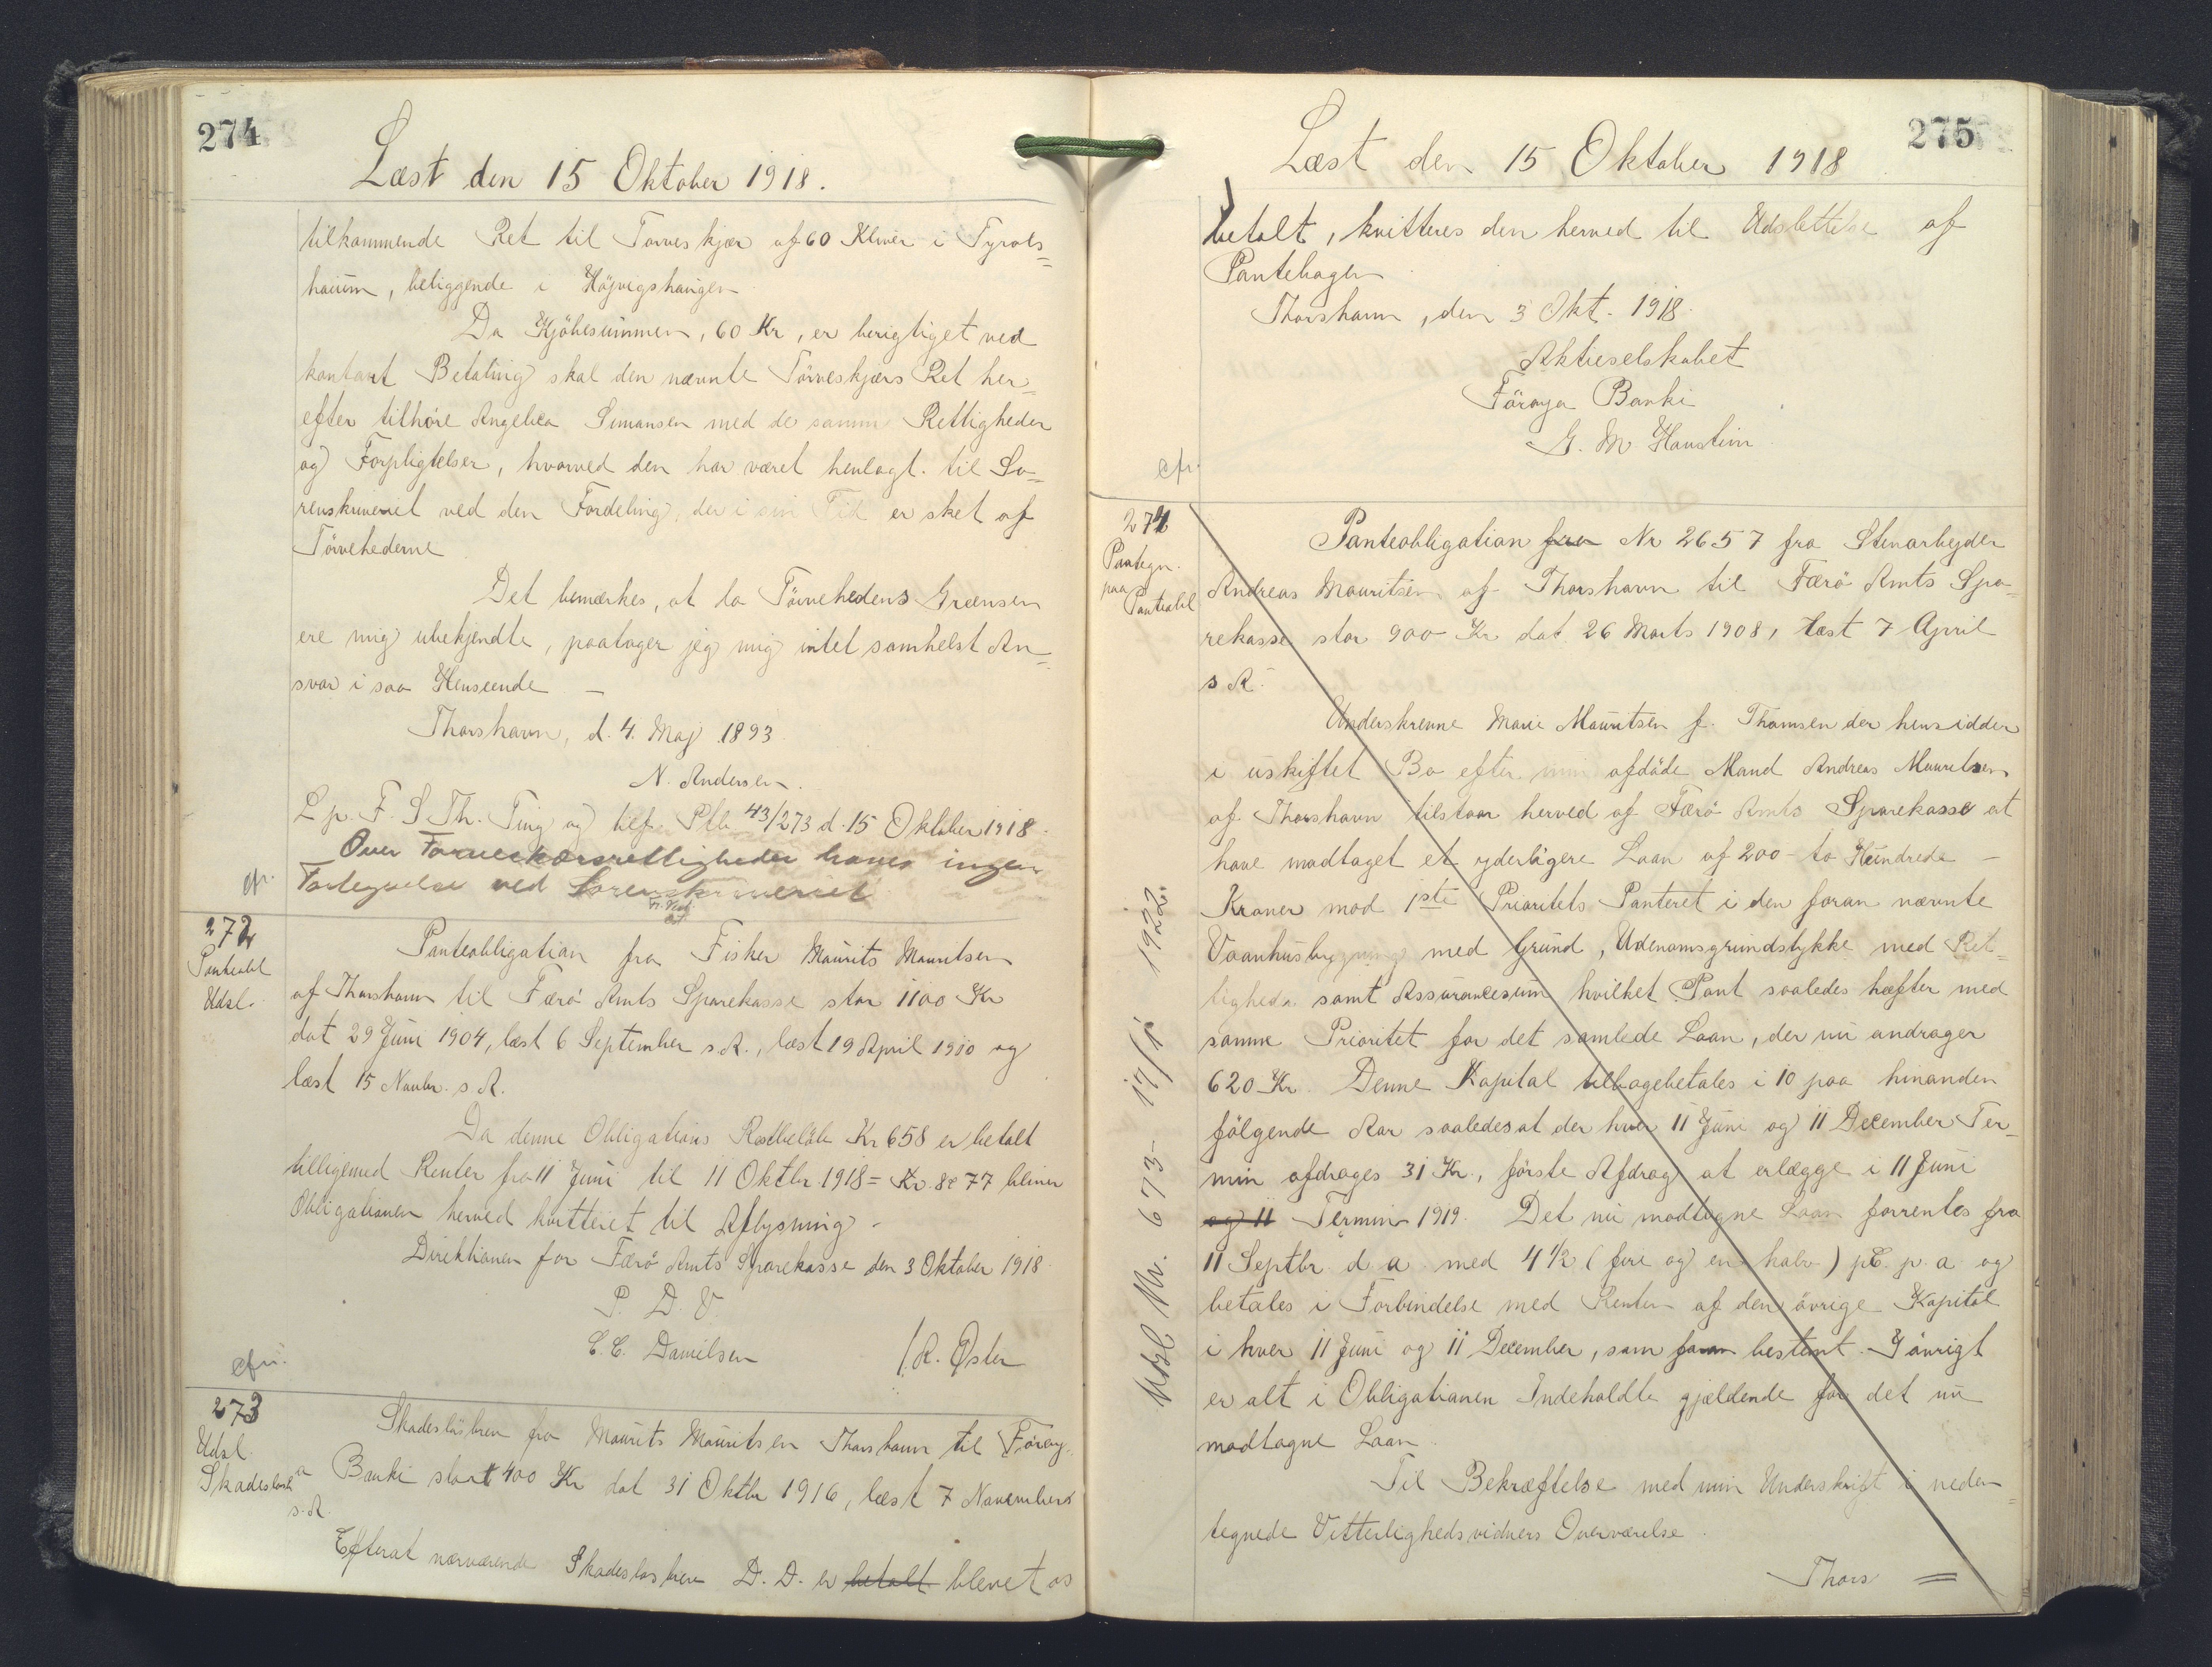 274
Læst den 15 Oktober 1918.
tilkommende Ret til Torveskjær af 60 Kliver i Tyrols=
haiim, beliggende i Højvigshaugen
Da Kjöbesummen, 60 Kr, er berigtiget ved
kontant Betaling skal den nævnte Törveskjærs Ret her=
efter tilhöre Angelica Simonsen med de samme Rettigheder
og Forpligtelser, hvorved den har været henlagt til So=
renskriveriet ved den Fordeling, der i sin Tid er sket af
Törvehederne
Det bemærkes, at da Törvehedens Grænsen
ere mig ubekjendte, paatager jeg mig intet somhelst An=
svar i saa Henseende —
Thorshavn, d. 4. Maj 1893.
N. Andersen.
L p. F. S Th. Ting og tilf. Plb 43/273 d. 15 Oktober 1918.
Over Torveskærsrettigheder haves ingen
cfr.
Fortegnelse ved Sorenskriveriet
272
Panteobl
Udsl.
Panteobligation fra Fisker Maurits Mauritsen
af Thorshavn til Færö Amts Sparekasse stor 1100 Kr
dat 29 Juni 1904, læst 6 September s.A., læst 19 April 1910 og
læst 15 Novbr. s A.
Da denne Obligations Restbelöb Kr 658 er betalt
tilligemed Renter fra 11 Juni til 11 Oktbr. 1918 = Kr. 8 77 bliver
Obligationen herved kvitteret til Aflysning.
Direktionen for Færö Amts Sparekasse den 3 Oktober 1918.
P. D. V
C. C. Danielsen /R. Øster
cfr.
273
Udsl
Skadeslösb
Skadeslösbrev fra Maurits Mauritsen Thorshavn til Föroy=
a Banki stort 400 Kr dat 31 Oktbr 1916, læst 7 November
s.A.
Efterat nærværende Skadeslosbrev D. D. er betalt blevet os
275
Læst den 15 Oktober 1918
betalt, kvitteres den herved til Udslettelse af
Pantebogen
Thorshavn, den 3 Okt. 1918.
Aktieselskabet
Föroya Banki
G. M Haustein
cfr.
274
Paategn.
paa
Panteobl
Panteobligation fra Nr 2657 fra Stenarbejder
Andreas Mauritsen af Thorshavn til Færö Amts Spa=
rekasse stor 900 Kr dat. 26 Marts 1908, læst 7 April
s A.
Underskrevne Marie Mauritsen f. Thomsen der hensidder
i uskiftet Bo efter min afdöde Mand Andreas Mauritsen
af Thorshavn tilstaar herved af Færö Amts Sparekasse at
have modtaget et yderligere Laan af 200 - to Hundrede -
Kroner mod 1ste Prioritets Panteret i den foran nævnte
Vaanhusbygning med Grund, Udenomsgrundstykke med Ret=
tigheder samt Assurancesum hvilket Pant saaledes hæfter med
samme Prioritet for det samlede Laan, der nu andrager
620 Kr. Denne Kapital tilbagebetales i 10 paa hinanden
fölgende Aar saaledes at der hver 11 Juni og 11 December Ter=
min afdrages 31 Kr., förste Afdrag at erlægge i 11 Juni
og 11 Termin 1919. Det nu modtagne Laan forrentes fra
11 Septbr. d. a. med 4 1/2 (fire og en halv) pC. p. a. og
betales i Forbindelse med Renten af den övrige Kapital
i hver 11 Juni og 11 December, som foran bestemt. I övrigt
er alt i Obligationen Indeholdte gjældende for det nu
modtagne Laan.
Til Bekræftelse med min Underskrift i neden=
tegnede Vitterlighedsvidners Overværelse.
Thors =
Udsl Nr. 673- 17/1 1922.